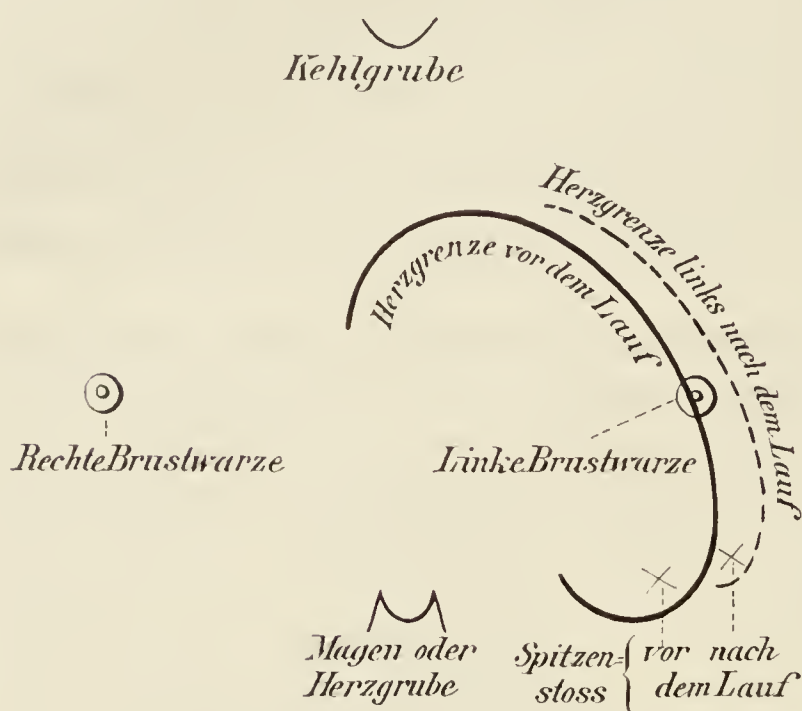 Kehlgrube
Herzgrenze links nach dem Lauf
Herzgrenze vor dem Lauf
Rechte Brustwarze
Linke Brustwarze
Magen oder
Herzgrube
Spitzen=
stoss
vor nach
dem Lauf